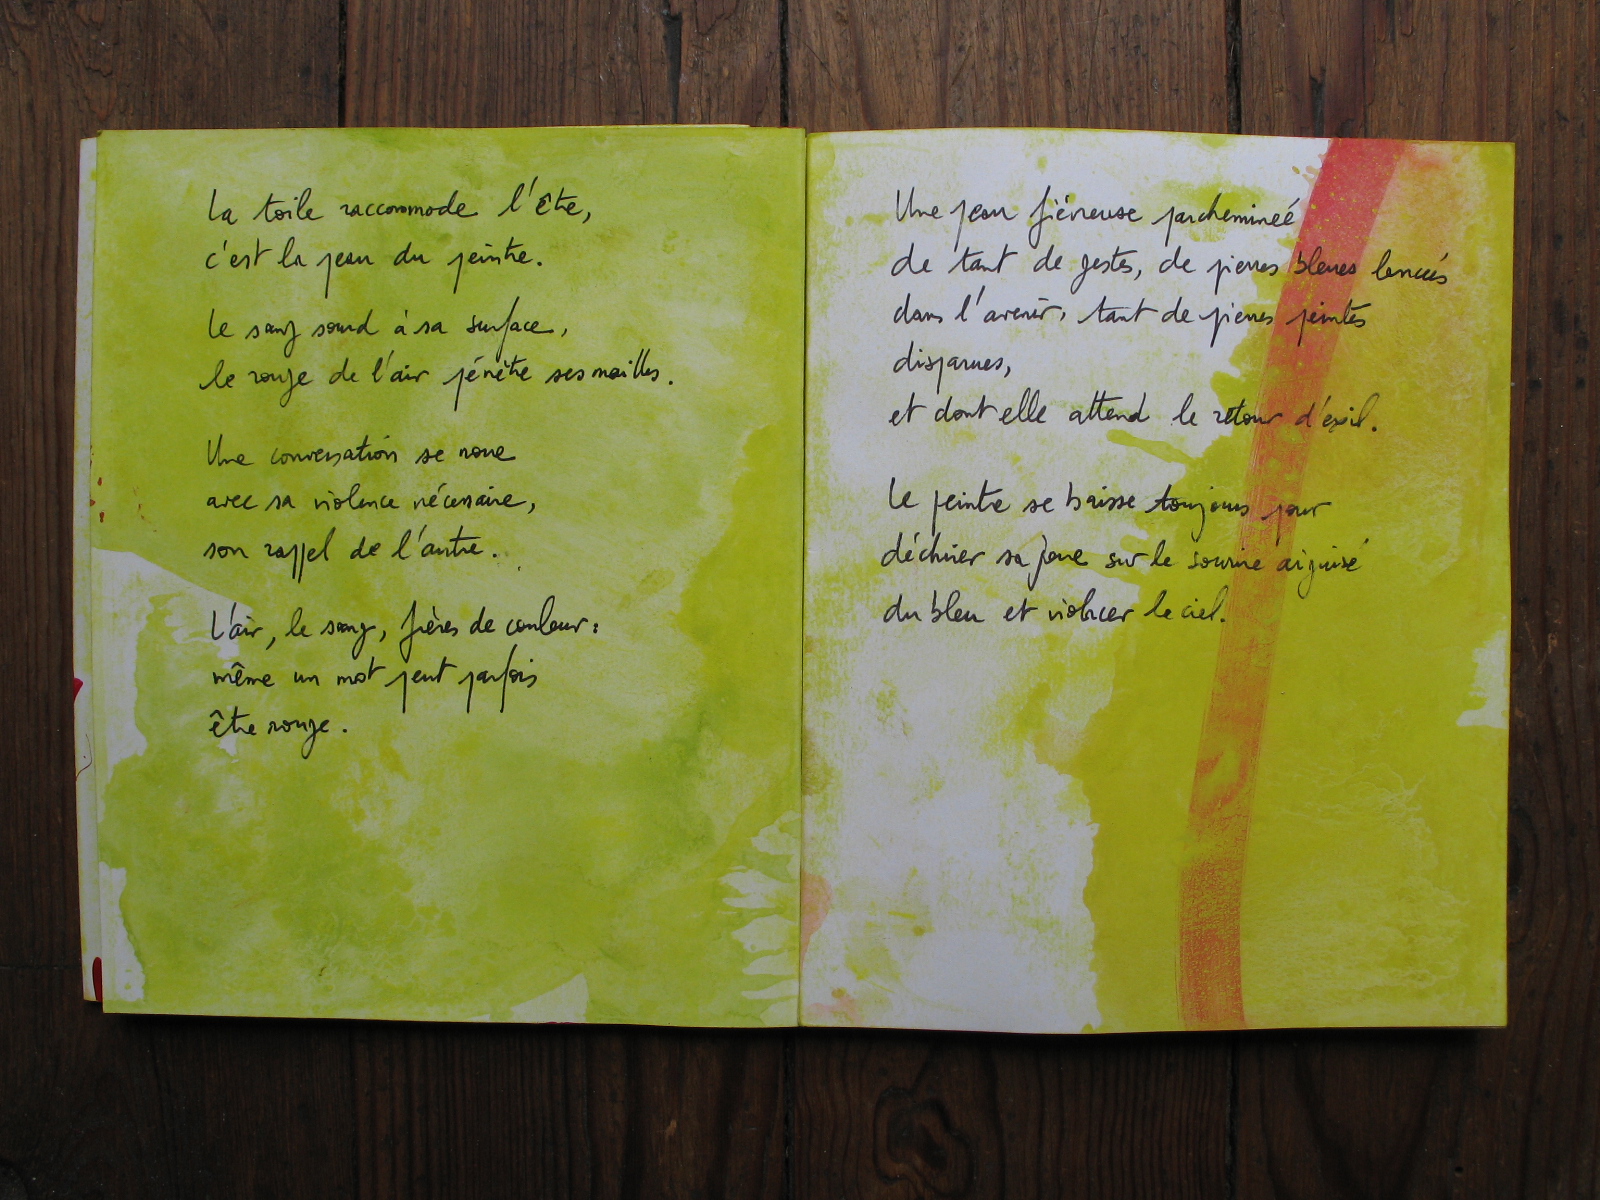 La toile raccommode l'être,
c'est la peau du peintre.
Le sang sourd à sa surface,
le rouge de l'air pénètre ses mailles.
Une conversation se noue
avec sa violence nécessaire,
son rappel de l'autre.
L'air, le sang, frères de couleur :
même un mot peut parfois
être rouge.
Une peau fiévreuse parcheminée
de tant de gestes, de pierres bleues lancées
dans l'avenir, tant de pierres peintes
disparues,
et dont elle attend le retour d'exil.
Le peintre se baisse toujours pour
déchirer sa joue sur le sourire aiguisé
du bleu et violacer le ciel.